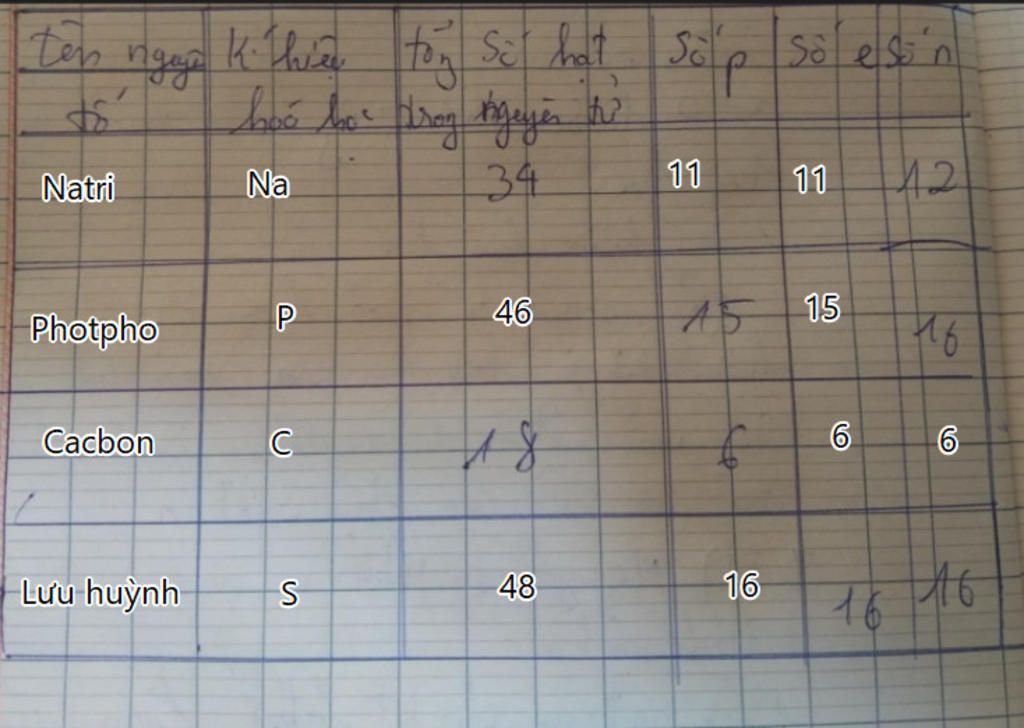 Tên nguyên Kí hiệu tổng số hạt số p số e số n
tố hoá học trong nguyên tử
Natri Na 34 11 11 12
Photpho P 46 15 15 16
Cacbon C 18 6 6 6
Lưu huỳnh S 48 16 16 16